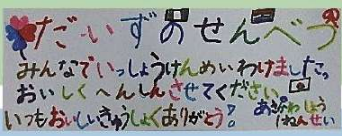 だいずのせんべつ
みんなでいっしょうけんめいわけましたっ
おいしくへんしんさせてください
いつもおいしいきゅうしょくありがとう!
あきがわしょう
1ねんせい